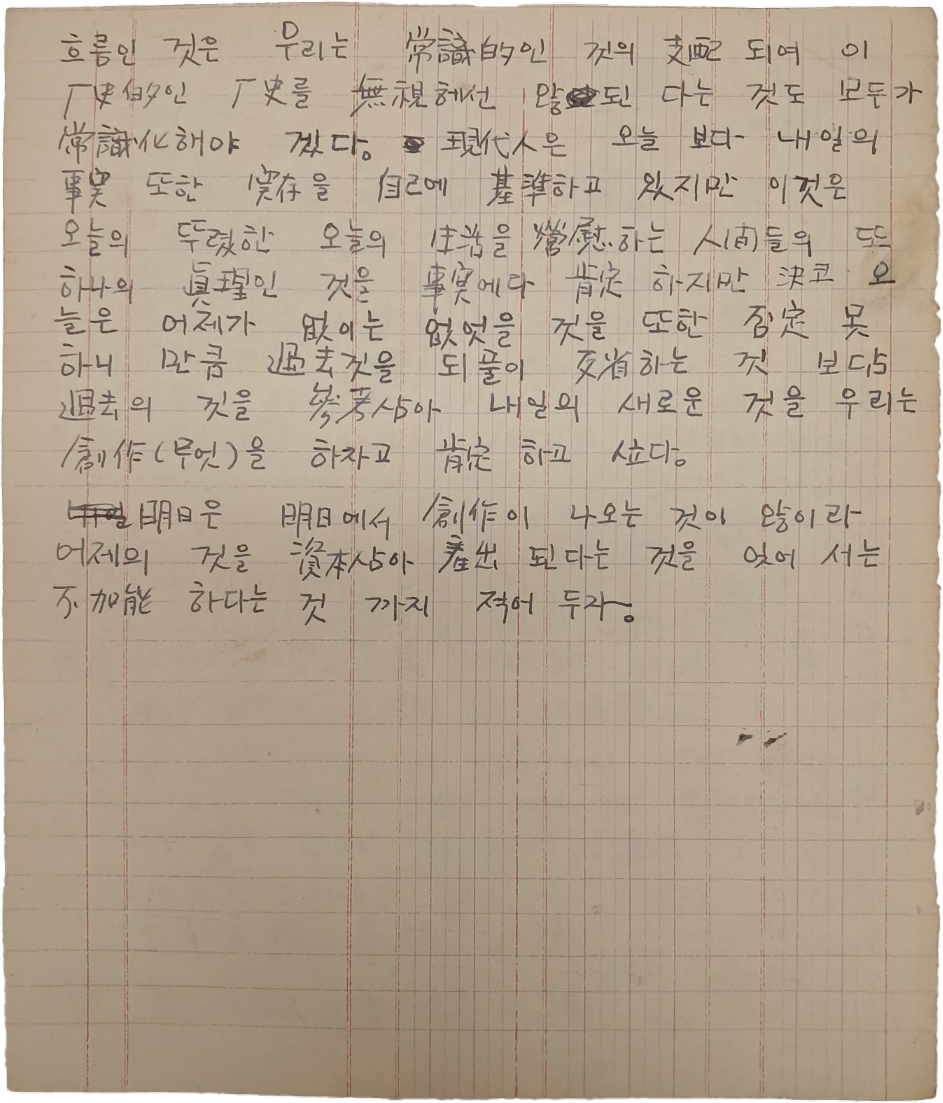 흐름인 것은 우리는 常識的인 것의 支配 되여 이
厂史的인 厂史를 無視해선 않된 다는 것도 모두가
常識化해야 겠다。 現代人은 오늘 보다 내일의
事実 또한 実存을 自己에 基準하고 있지만 이것은
오늘의 뚜렸한 오늘의 生活을 営慰하는 人间들의 또
하나의 眞理인 것을 事実에다 肯定 하지만 決코 오
늘은 어제가 없이는 없엇을 것을 또한 否定 못
하니 만큼 過去것을 되풀이 反省하는 것 보다
過去의 것을 参考삼아 내일의 새로운 것을 우리는
創作(무엇)을 하자고 肯定 하고 싶다。
明日은 明日에서 創作이 나오는 것이 않이라
어제의 것을 資本삼아 産出 된다는 것을 잇에 서는
不加能 하다는 것 까지 적어 두자。